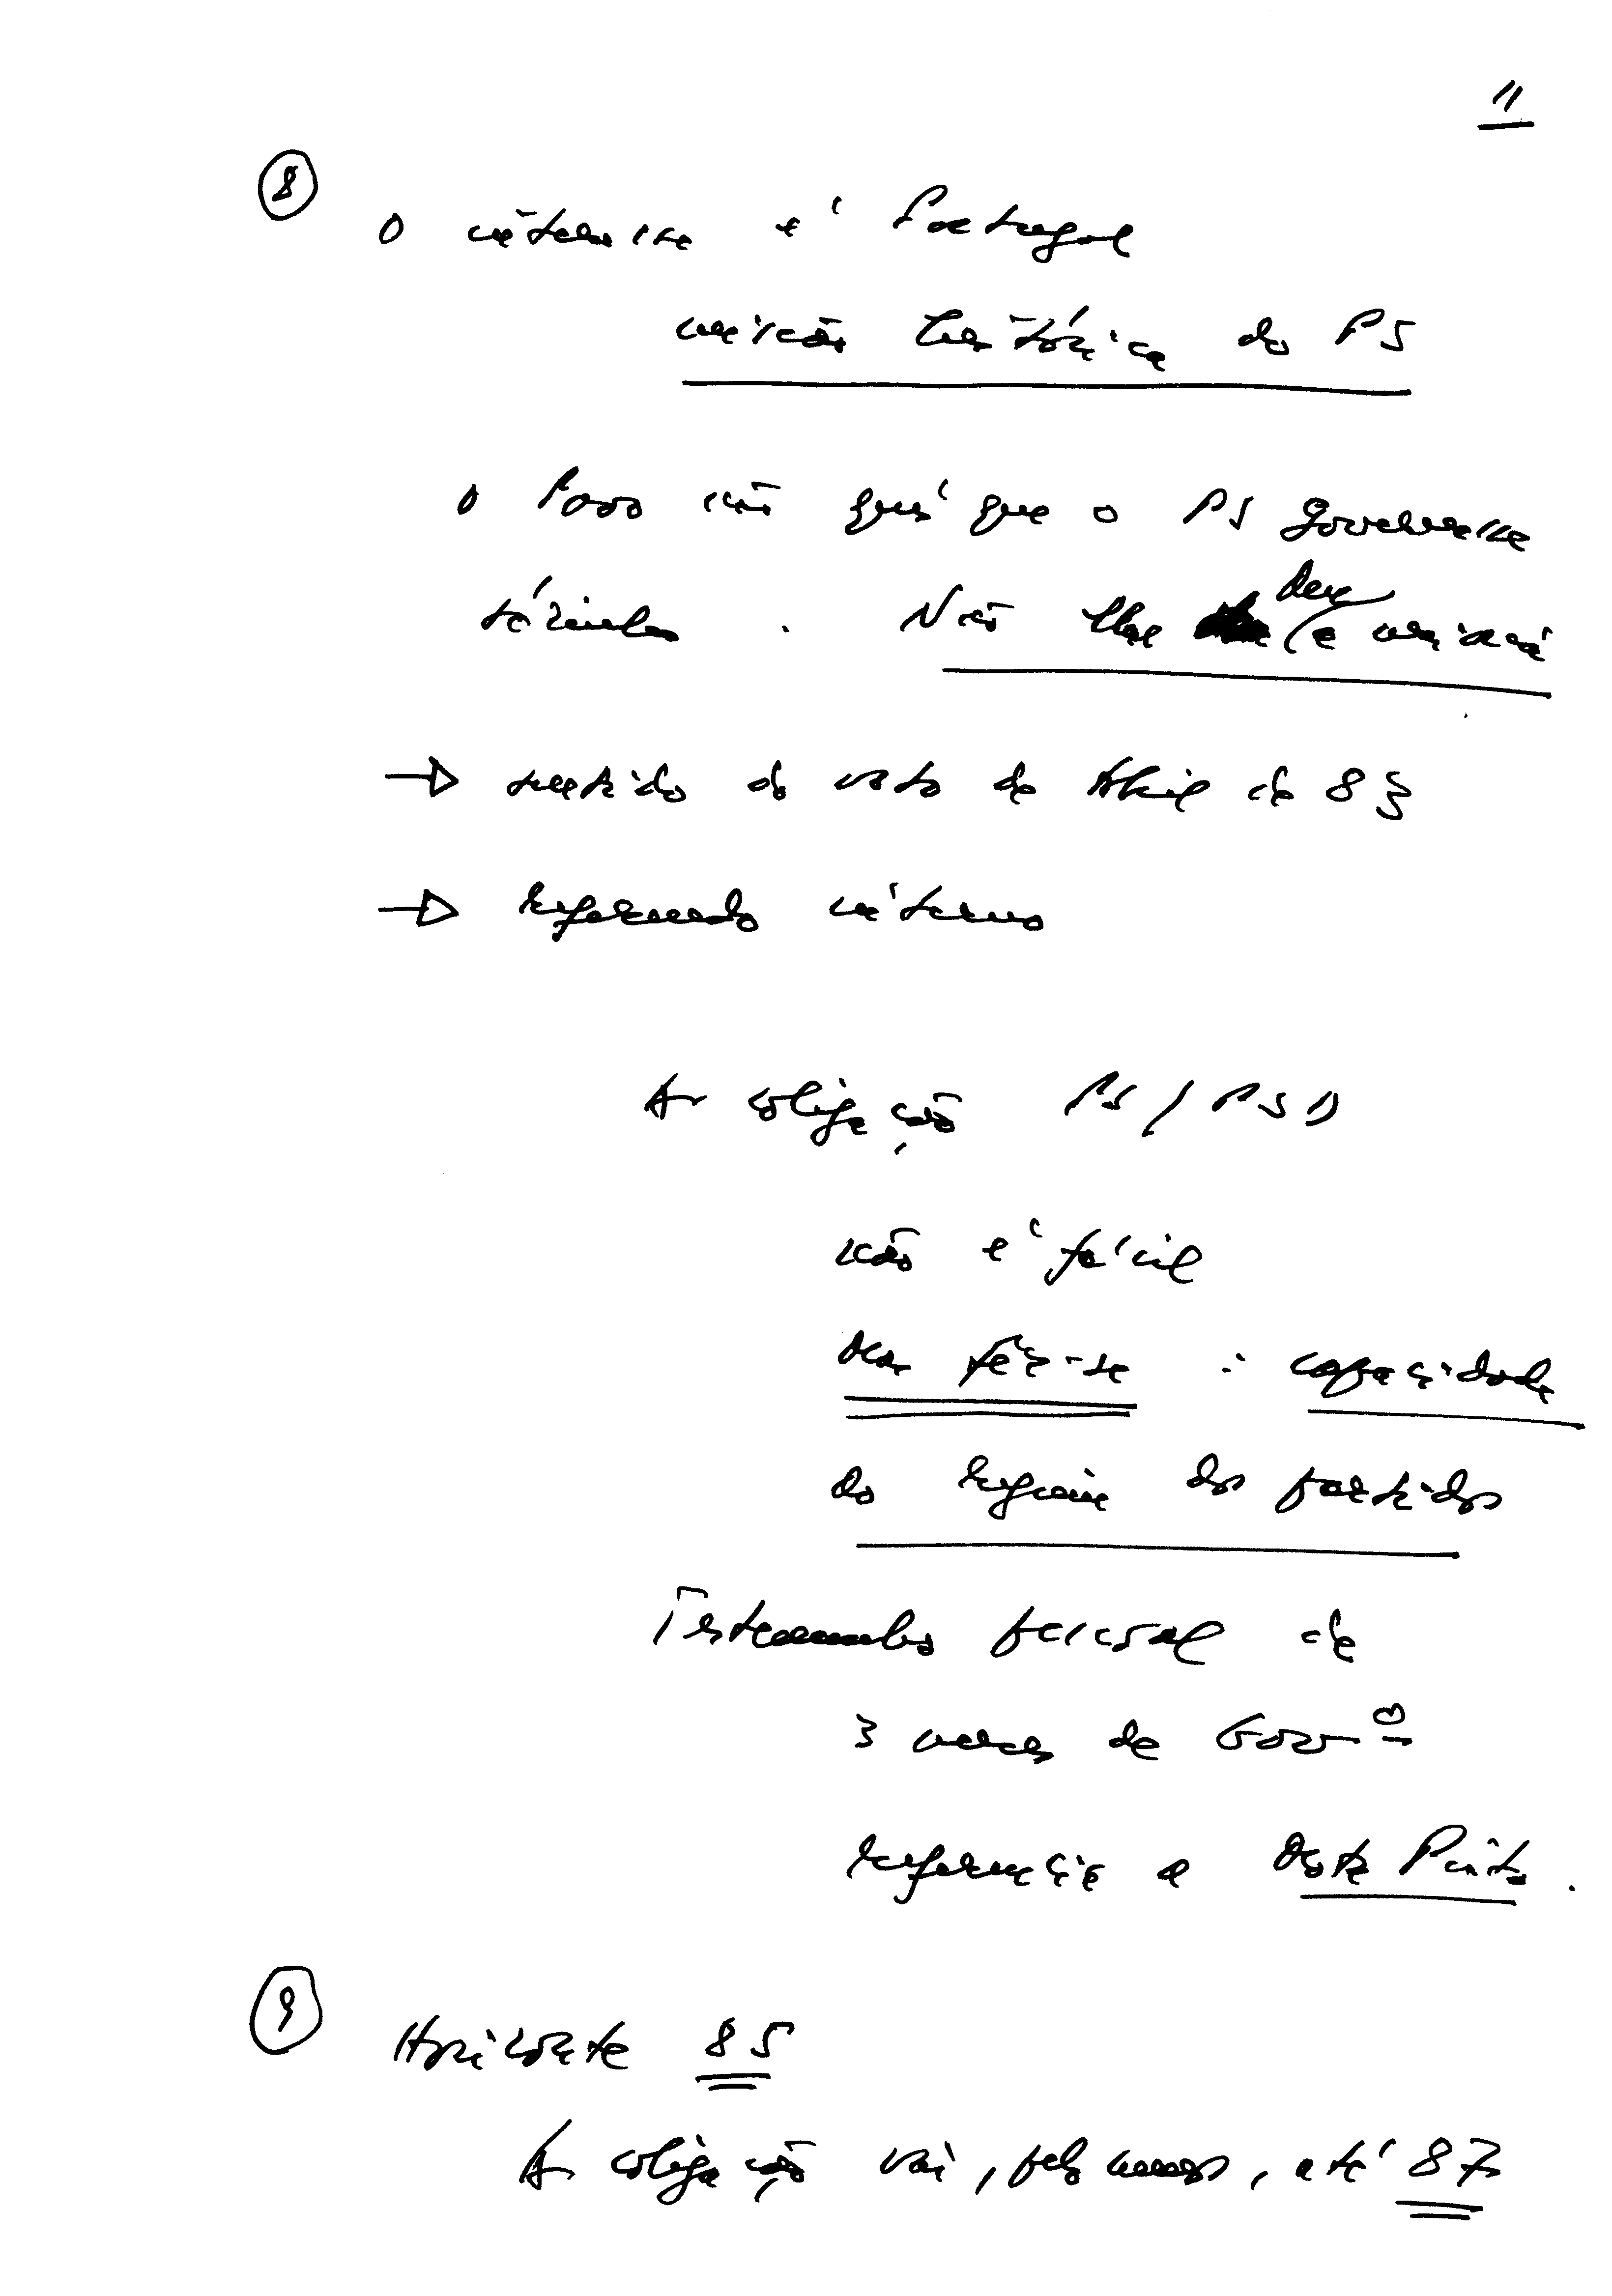 11
8
O interesse é Portugal
missão histórica do PS
O Povo não quis que o PS governasse
sózinho. Não lhe deu essa missão
→ sentido do voto de Abril de 83
→ referendo interno
A coligação PS/PSD
não é fácil
Mas fez-se : capacidade
do regime dos partidos
Testemunho pessoal de
3 meses de Govº
referência a Mota Pinto.
9
Horizonte 85
A coligação vai, pelo menos, até 87